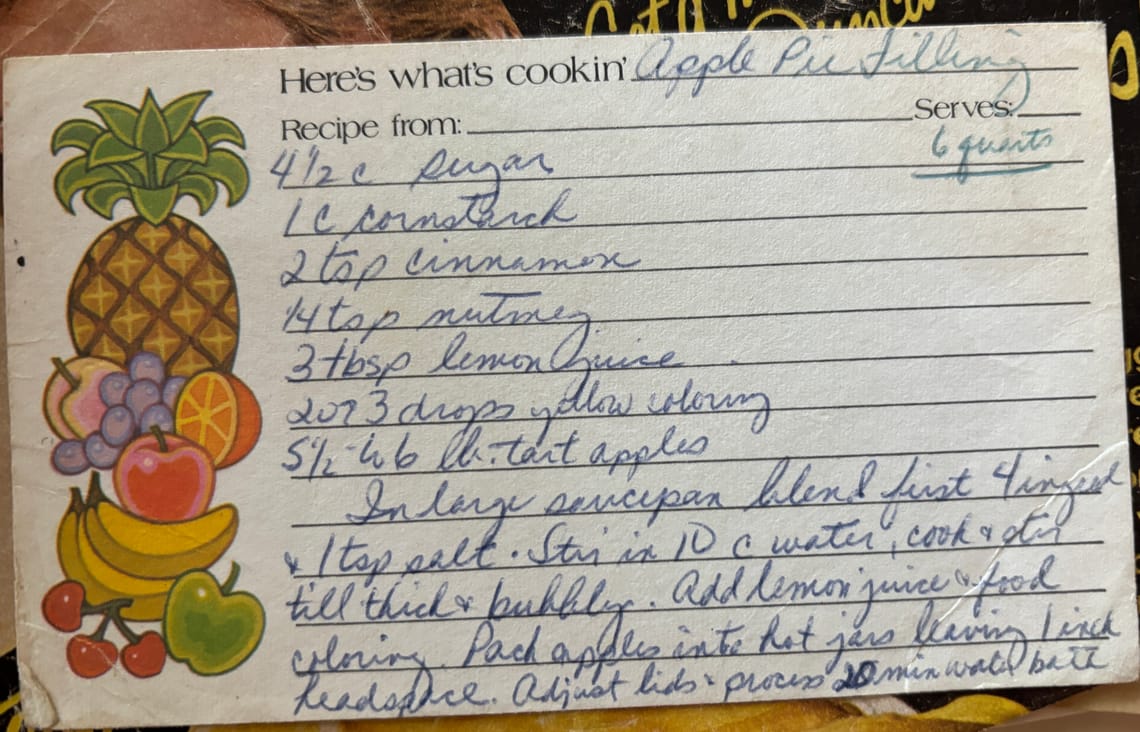 Here's what's cookin' Apple Pie Filling
Recipe from: Serves:
6 quarts
4 1/2 c sugar
1 c cornstarch
2 tsp cinnamon
1/4 tsp nutmeg
3 tbsp lemon juice
2 or 3 drops yellow coloring
5 1/2 to 6 lb. tart apples
In large saucepan blend first 4 ingred
& 1 tsp salt. Stir in 10 c water, cook & stir
till thick & bubbly. Add lemon juice & food
coloring. Pack apples into hot jars leaving 1 inch
headspace. Adjust lids & process 20 min water bath